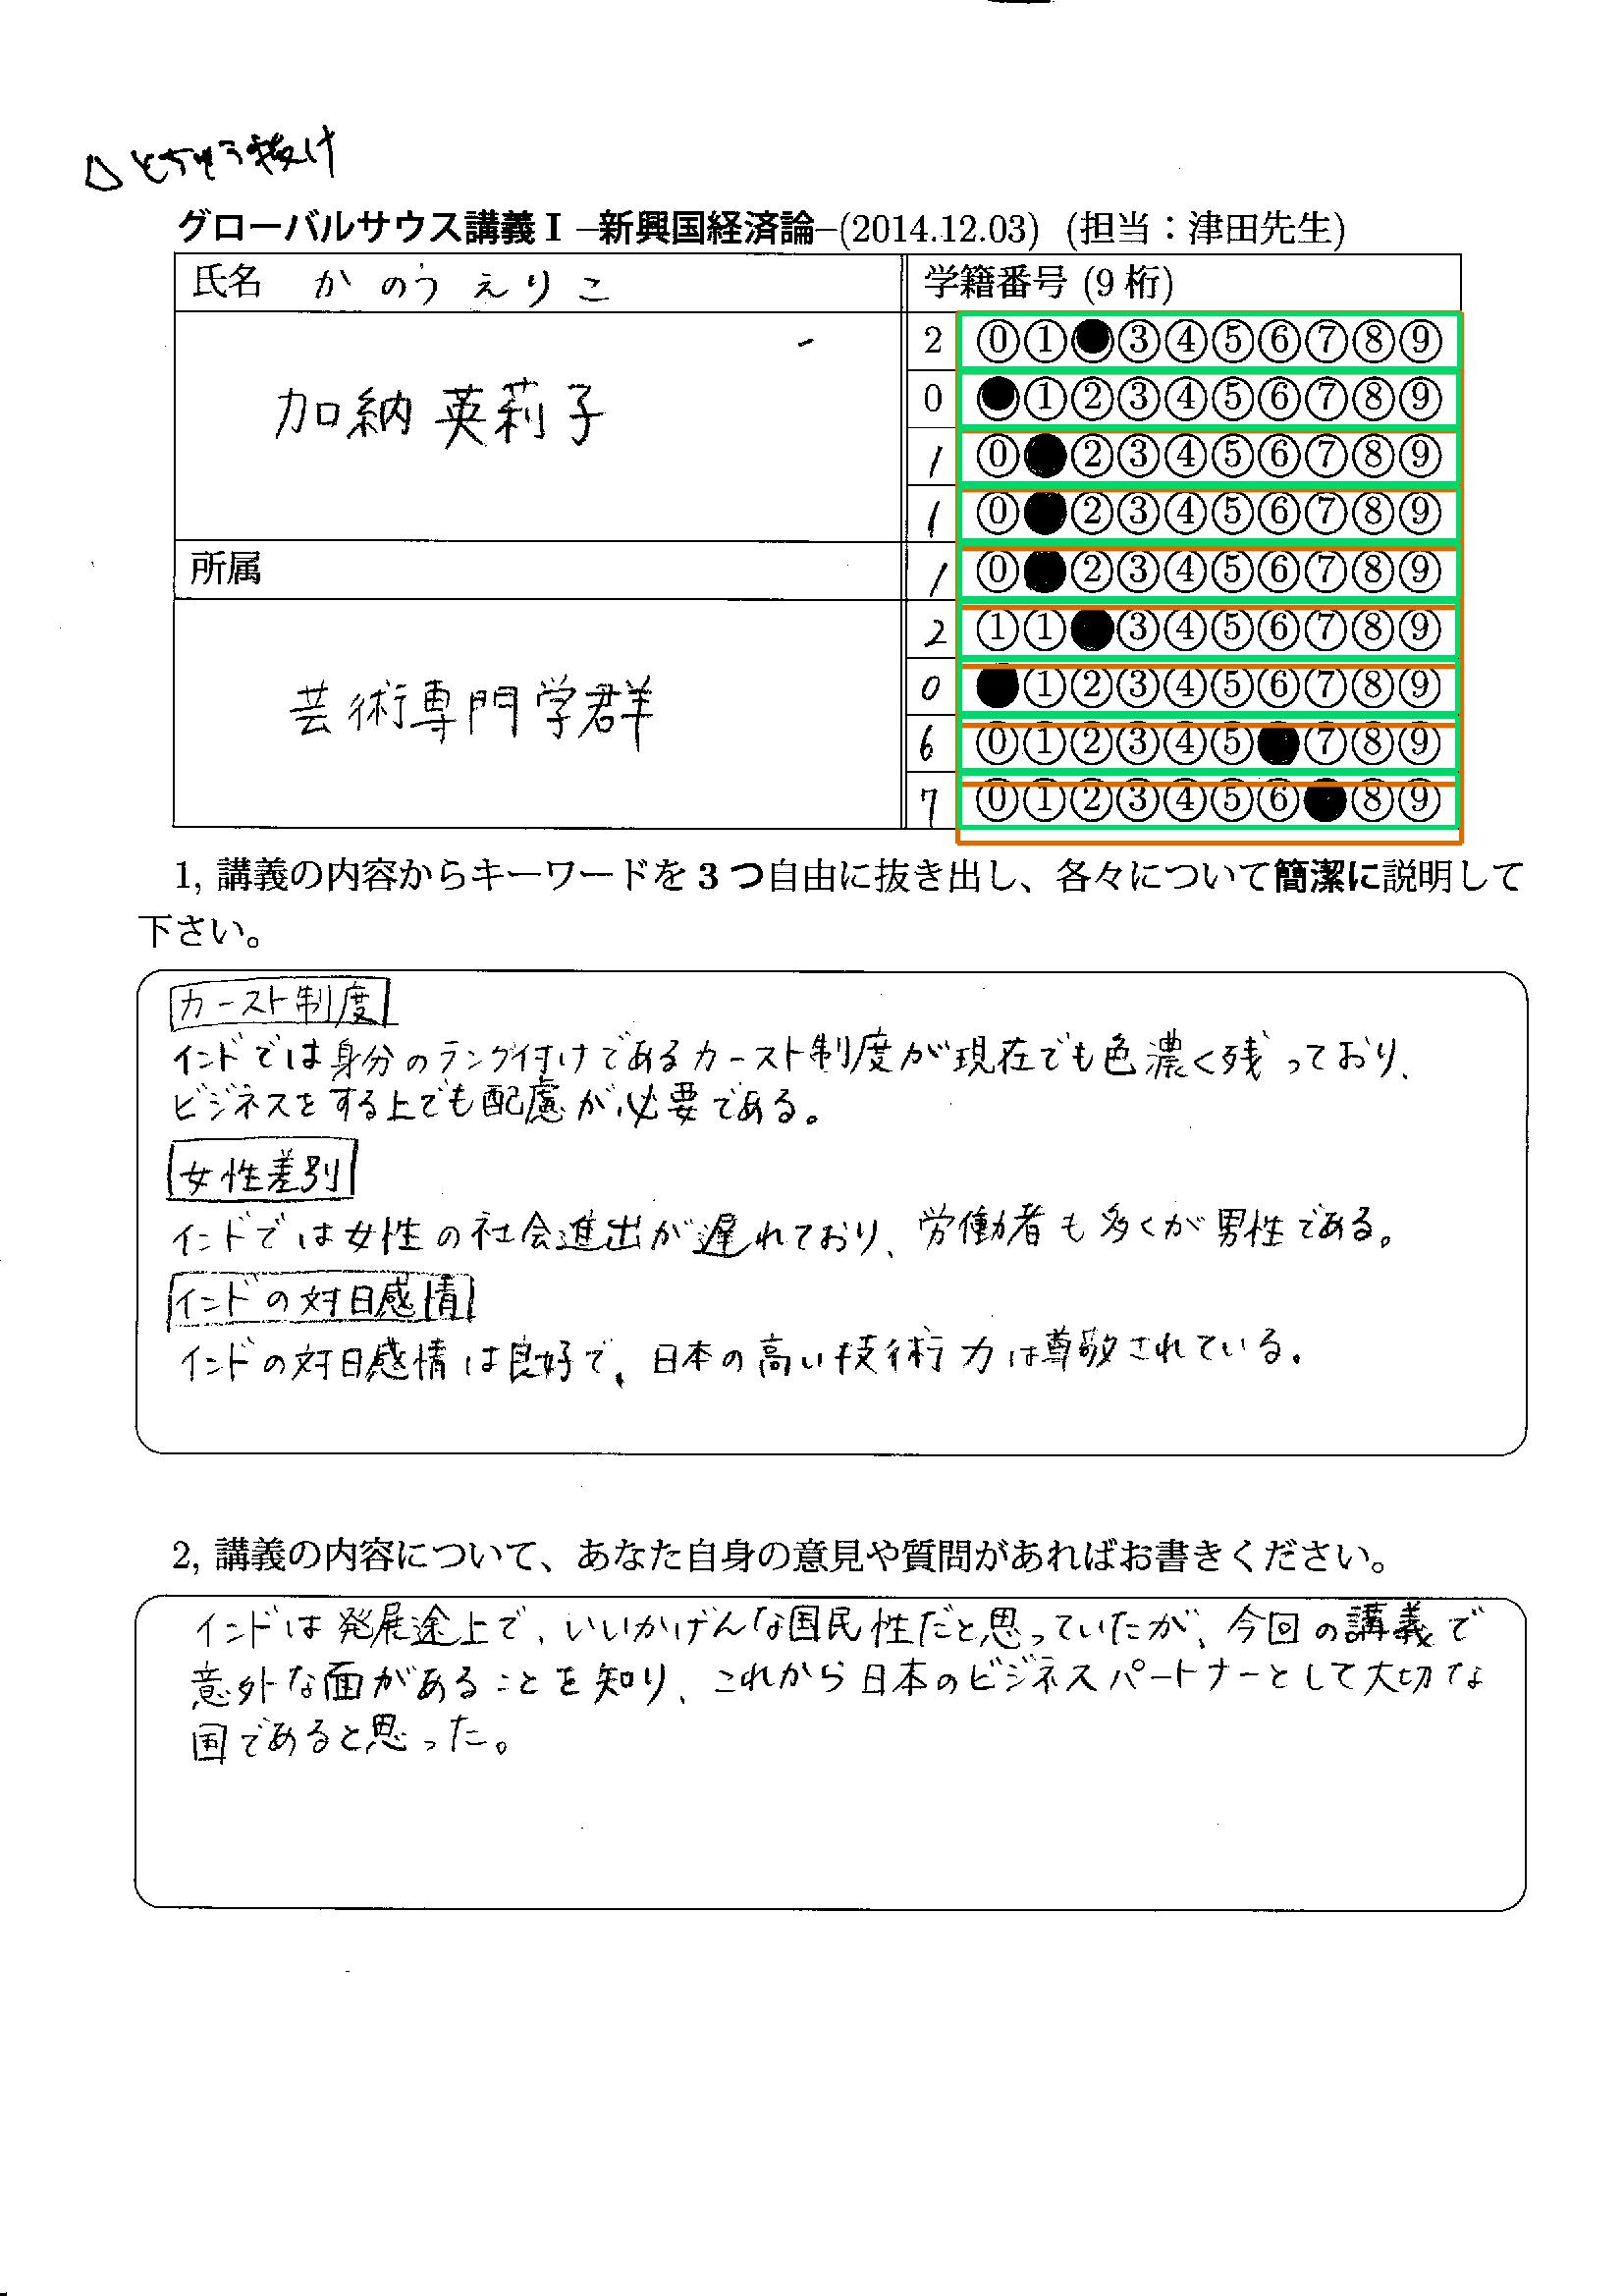 △とちゅう抜け
グローバルサウス講義 I –新興国経済論–(2014.12.03) (担当：津田先生)
氏名 かのう えりこ
学籍番号 (9 桁)
加納 英莉子
2 ⓪①●③④⑤⑥⑦⑧⑨
0 ●①②③④⑤⑥⑦⑧⑨
1 ⓪●②③④⑤⑥⑦⑧⑨
1 ⓪●②③④⑤⑥⑦⑧⑨
所属
1 ⓪●②③④⑤⑥⑦⑧⑨
2 ①①●③④⑤⑥⑦⑧⑨
芸術専門学群
0 ●①②③④⑤⑥⑦⑧⑨
6 ⓪①②③④⑤●⑦⑧⑨
7 ⓪①②③④⑤⑥●⑧⑨
1, 講義の内容からキーワードを 3 つ自由に抜き出し、各々について簡潔に説明して
下さい。
カースト制度
インドでは身分のランク付けであるカースト制度が現在でも色濃く残っており、
ビジネスをする上でも配慮が必要である。
女性差別
インドでは女性の社会進出が遅れており、労働者も多くが男性である。
インドの対日感情
インドの対日感情は良好で、日本の高い技術力は尊敬されている。
2, 講義の内容について、あなた自身の意見や質問があればお書きください。
インドは発展途上で、いいかげんな国民性だと思っていたが、今回の講義で
意外な面があることを知り、これから日本のビジネスパートナーとして大切な
国であると思った。